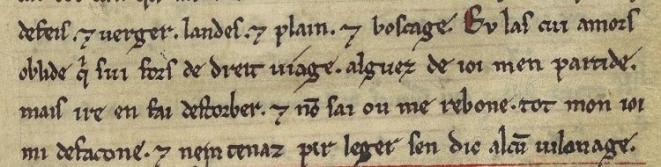 defeis. ⁊ uerger. landes. ⁊ plain. ⁊ boscage. Eu las cui amors
oblide q̄ sui fors de dreit uiage. alguez de ioi men partide.
mais ire en fai destorber. ⁊ nō sai ou me rebone. tot mon ioi
mi desacone. ⁊ nem tenaz per leger sen dic alcū uilonage.